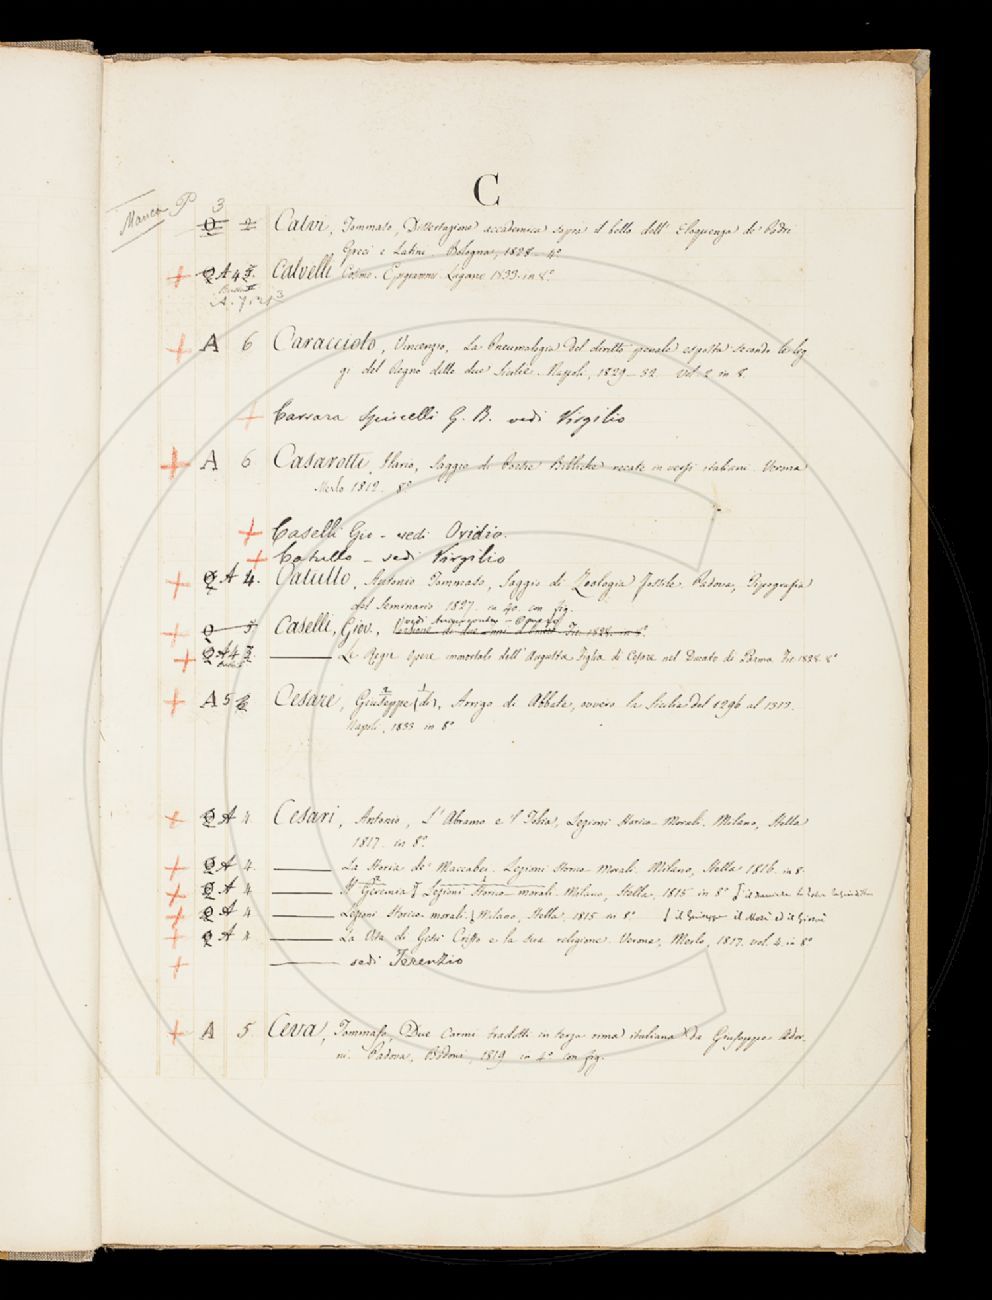 C
Manca P 3
Q 2 Calvi, Tommaso, Dissertazione accademica sopra il bello dell' Eloquenza de' Padri
Greci e Latini. Bologna, 1828. 4°
+ Q A 4 Calvelli Cosmo. Epigrammi. Lugano 1833. in 8°
+ A 6 Caracciolo, Vincenzo, La Pneumalogia del diritto penale esposta secondo le leg
gi del Regno delle due Sicilie. Napoli, 1829–32. Vol. 2 in 8.
+ Carrara Spinelli G. B. vedi Virgilio
+ A 6 Casarotti, Ilario, Saggio di Poesie Bibliche recate in versi italiani. Verona
Merlo 1812. 8°
+ Caselli Gio – vedi Ovidio.
+ Catullo – vedi Virgilio
+ Q A 4. Catullo, Antonio Tommaso, Saggio di Zoologia Fossile. Padova, Tipografia
del Seminario 1827. in 4°. con fig.
+ Q 5 Caselli, Giov.,
+ Q A 4 —— Le Regie Opere immortale dell' Augusta Figlia di Cesare nel Ducato di Parma 1828. 8°
+ A 5 Cesare, Giuseppe (di), Arrigo di Abbate, ovvero la Sicilia del 1296 al 1313.
Napoli, 1833 in 8°
+ Q A 4. Cesari, Antonio, L'Abramo e 'l Tobia, Lezioni storico-morali. Milano, Stella
1817. in 8°
+ Q A 4. —— La Storia de' Maccabei. Lezioni storico-morali. Milano, Stella 1816. in 8.
+ Q A 4 —— Il Geremia Lezioni storico-morali. Milano, Stella, 1815 in 8°
+ Q A 4 —— Lezioni storico-morali. Milano, Stella, 1815. in 8° il Giuseppe il Mosè ed il
+ Q A 4 —— La Vita di Gesù Cristo e la sua religione. Verona, Merlo, 1817. vol. 4. in 8°
+ —— vedi Terenzio
+ A 5 Ceva, Tommaso, Due Carmi tradotti in terza rima italiana da Giuseppe Ador
ni. Padova, Bodoni, 1819 in 4° con fig.